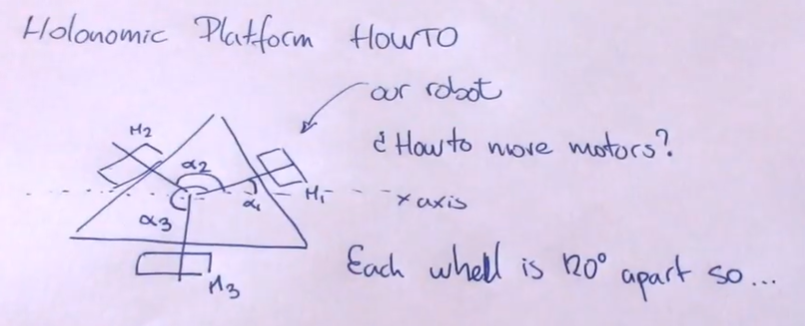 Holonomic Platform HowTO
our robot
¿How to move motors?
M2
α2
M1
α1
x axis
α3
M3
Each whell is 120° apart so...